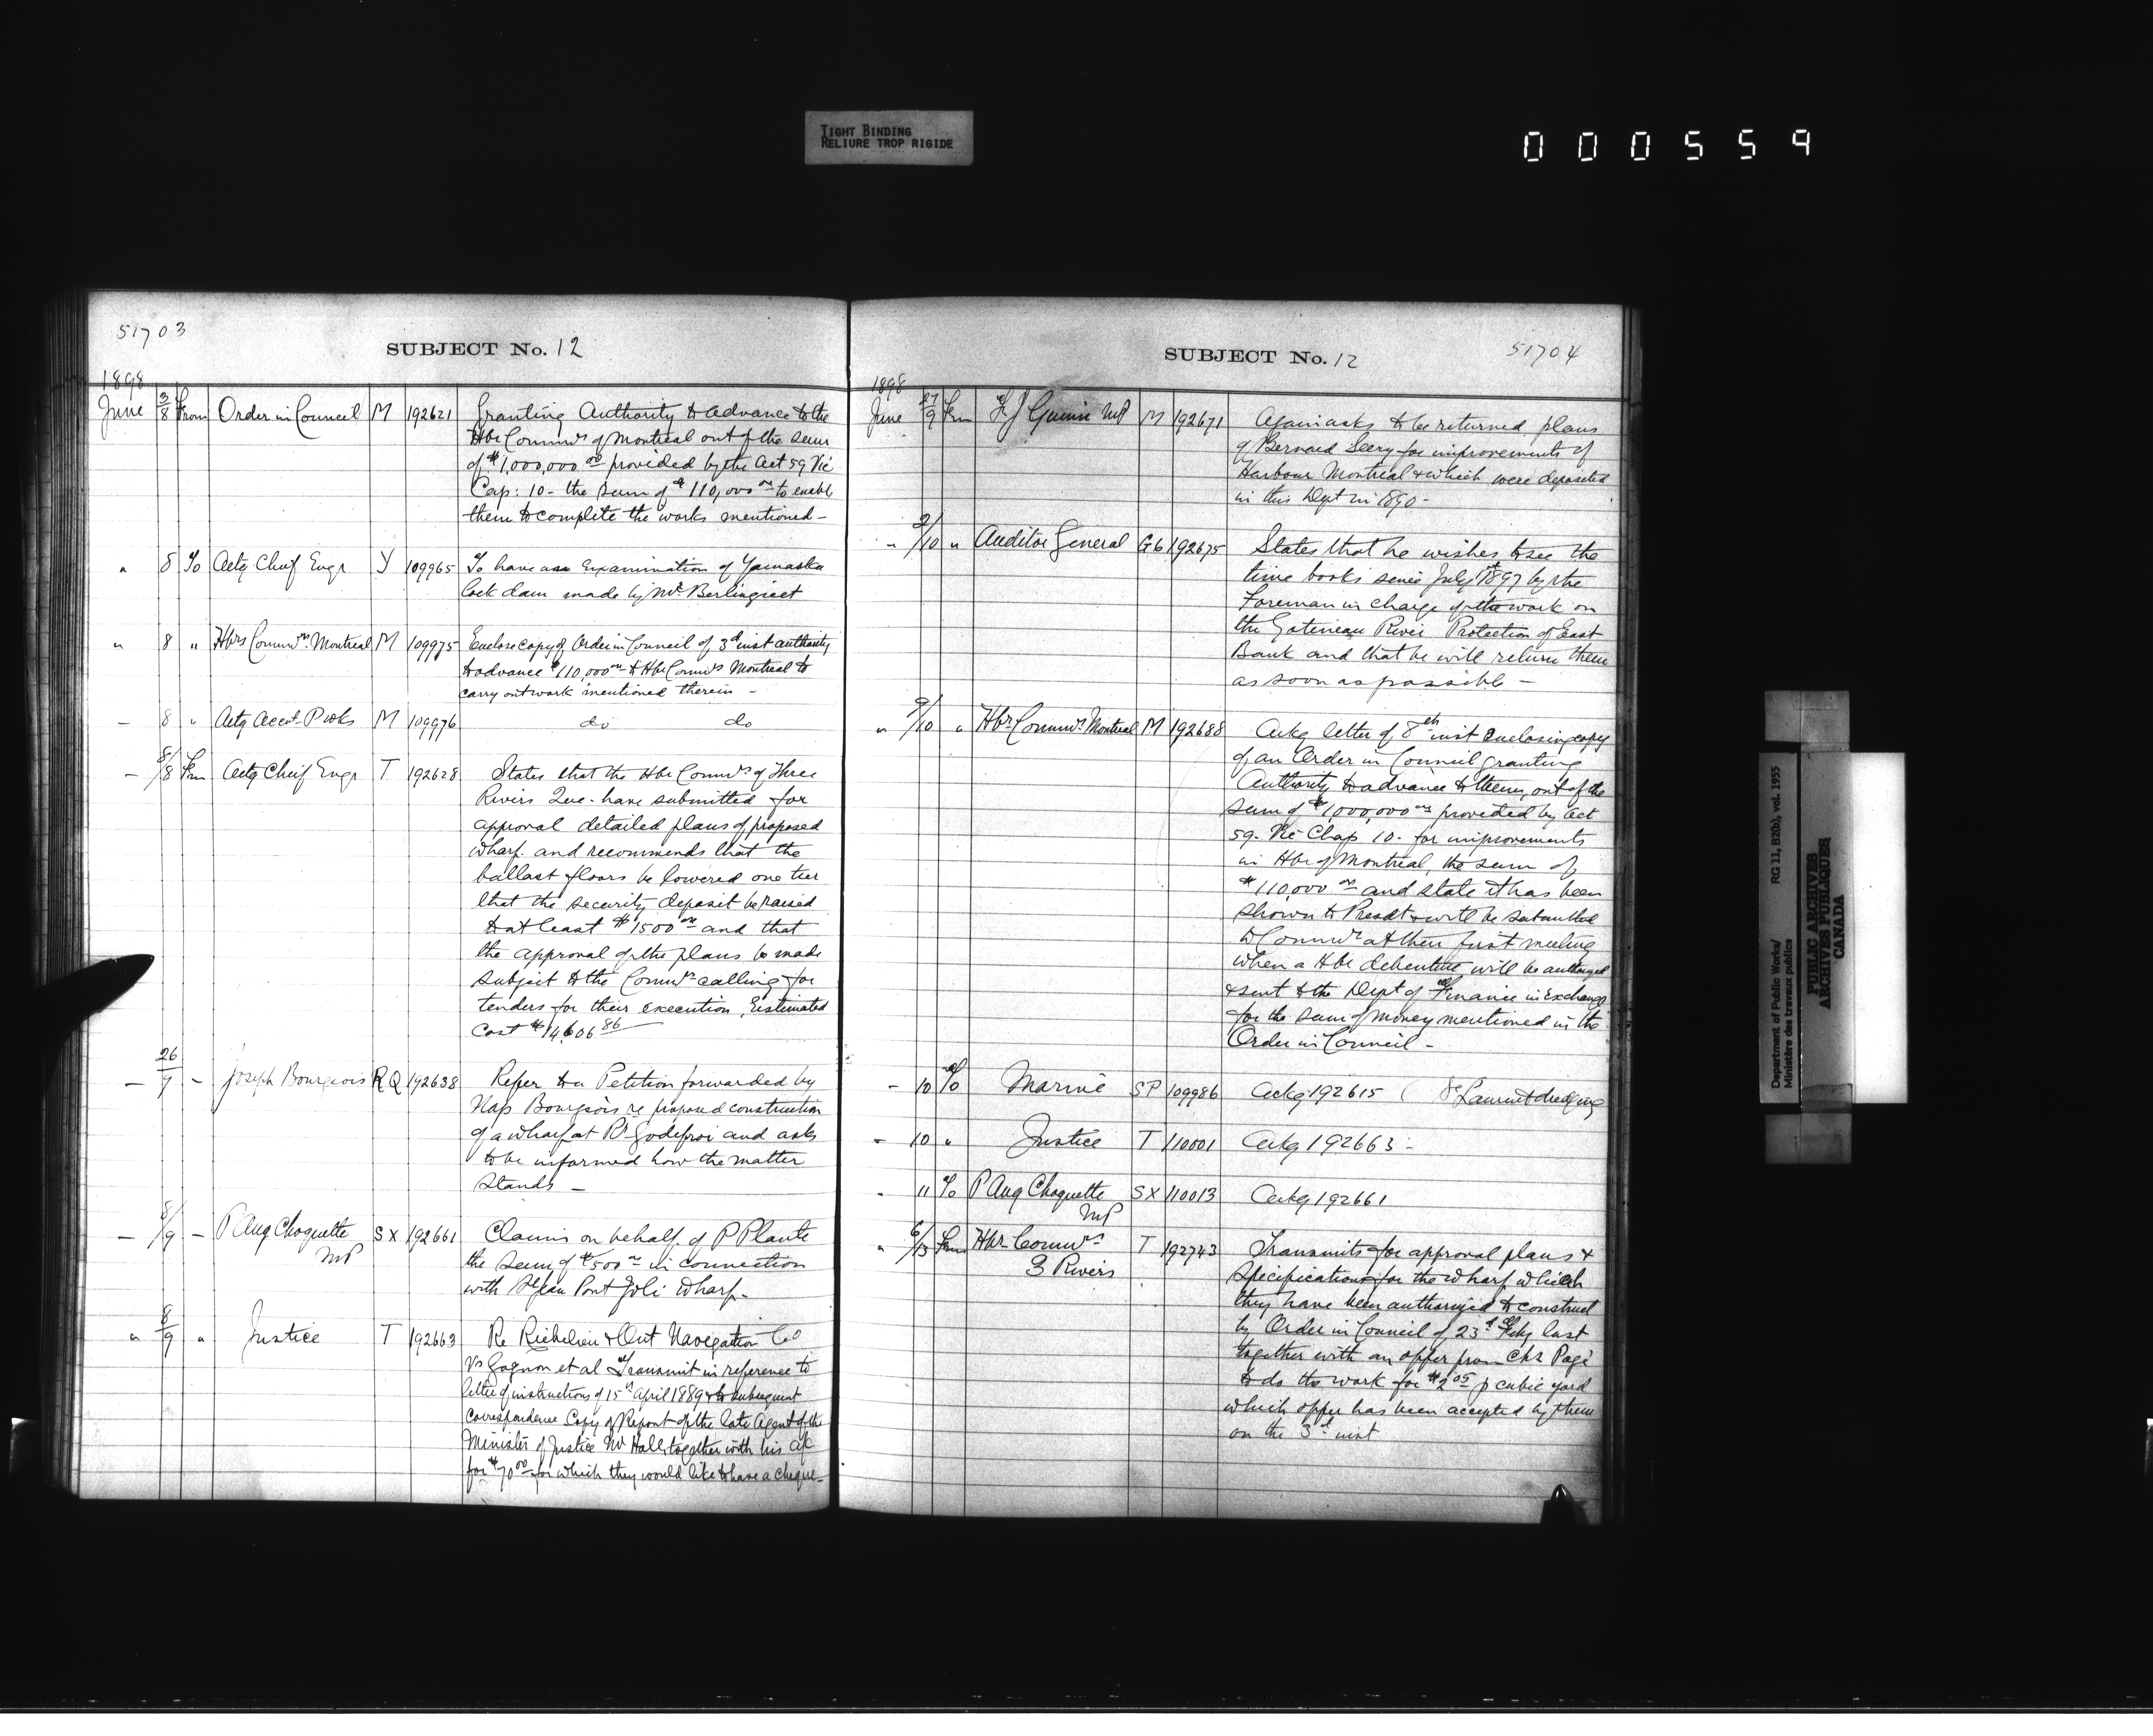 TIGHT BINDING
RELIURE TROP RIGIDE
000559
51703
SUBJECT No. 12
1898
June 3/8 From Order in Council M 192621 Granting Authority to advance to the
Hbr Commrs of Montreal out of the sum
of $1,000,000 00 provided by the Act 59 Vic
Cap: 10 - the sum of $110,000 00 to enable
them to complete the works mentioned -
" 8 To Actg Chief Engr Y 109965 To have an Examination of Yamaska
lock dam made by Mr Berlinguet
" 8 " Hbrs Commrs. Montreal M 109975 Enclose copy of Order in Council of 3d inst authority
to advance $110,000 00 to Hbr Commrs Montreal to
carry out work mentioned therein -
- 8 " Actg Acct. P Wks M 109976 do do
- 8/8 Frm Actg Chief Engr T 192628 States that the Hbr Commrs of Three
Rivers Que. have submitted for
approval detailed plans of proposed
wharf and recommends that the
ballast floors be lowered one tier
that the security deposit be raised
to at least $1500 00 and that
the approval of the plans be made
subject to the Commrs calling for
tenders for their execution, Estimated
Cost $14,606 86
- 26/9 - Joseph Bourgeois RQ 192638 Refer to a Petition forwarded by
Nap Bourgeois re proposed construction
of a wharf at Rr Godefroi and asks
to be informed how the matter
stands -
- 8/9 - P Aug Choquette SX 192661 Claims on behalf of P Plante
MP the sum of $500 00 in connection
with St Jean Port Joli wharf -
" 8/9 " Justice T 192663 Re Richelieu & Ont Navegation Co
Vs Gagnon et al Transmit in reference to
letter of instructions of 15th April 1889 & to subsequent
correspondence Copy of Report of the late Agent of the
Minister of Justice Mr Hall, together with his a/c
for $70 00 for which they would like to have a cheque -
SUBJECT No. 12
51704
1898
June 27/9 Frm F J Guinn MP M 192671 Again asks to be returned plans
of Bernard Leery for improvements of
Harbour Montreal & which were deposited
in this Dept in 1890 -
" 2/10 " Auditor General G6 192675 States that he wishes to see the
time books since July 1st 1897 by the
Foreman in charge of the work on
the Gatineau River Protection of East
Bank and that he will return them
as soon as possible -
" 9/10 " Hbr Commrs Montreal M 192688 Ackg letter of 8th inst enclosing copy
of an Order in Council granting
Authority to advance to them, out of the
sum of $1,000,000 00 provided by Act
59. Vic Chap 10. for improvements
in Hbr of Montreal, the sum of
$110,000 00 and state it has been
shown to Presdt & will be submitted
to Commrs at their first meeting
when a Hbr debenture will be authorized
& sent to the Dept of Finance in exchange
for the sum of money mentioned in the
Order in Council -
- 10 To Marine SP 109986 Ackg 192615 ( St Laurent dredging
- 10 " Justice T 110001 Ackg 192663 -
- 11 To P Aug Choquette SX 110013 Ackg 192661
MP
" 6/13 Frm Hbr Commrs T 192743 Transmits for approval plans &
3 Rivers specifications for the wharf which
they have been authorized to construct
by Order in Council of 23d Feby last
together with an offer from Chs Pagé
to do the work for $2 05 p cubic yard
which offer has been accepted by them
on the 3d inst
Department of Public Works/ RG 11, B2(b), vol. 1955
Ministère des travaux publics
PUBLIC ARCHIVES
ARCHIVES PUBLIQUES
CANADA